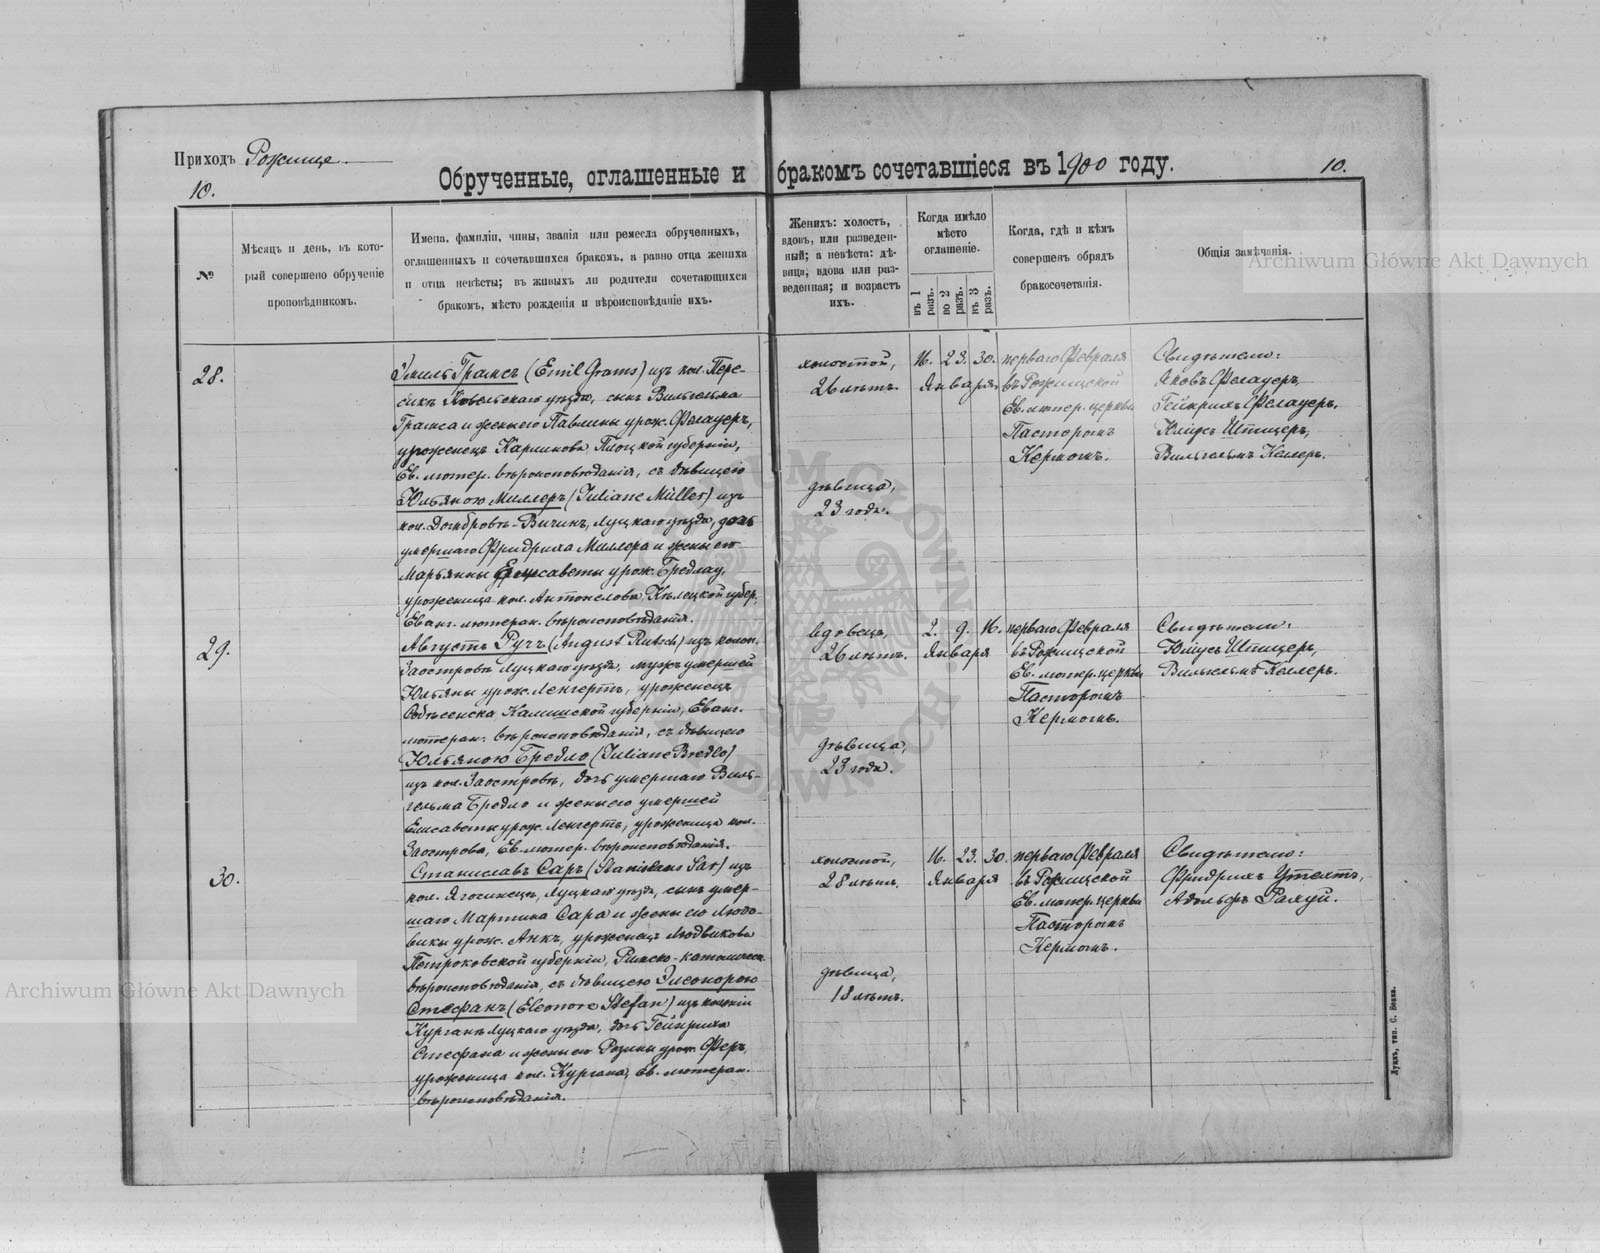 Приходъ Рожище.
10.
Обрученные, оглашенные и бракомъ сочетавшіеся въ 1900 году.
10.
№
Мѣсяцъ и день, въ кото-
рый совершено обрученіе
проповѣдникомъ.
Имена, фамиліи, чины, званія или ремесла обрученныхъ,
оглашенныхъ и сочетавшихся бракомъ, а равно отца жениха
и отца невѣсты; въ живыхъ ли родители сочетающихся
бракомъ, мѣсто рожденія и вѣроисповѣданіе ихъ.
Женихъ: холостъ,
вдовъ, или разведен-
ный; а невѣста: дѣ-
вица, вдова или раз-
веденная; и возрастъ
ихъ.
Когда имѣло
мѣсто
оглашеніе.
въ 1 разъ.
во 2 разъ.
въ 3 разъ.
Когда, гдѣ и кѣмъ
совершенъ обрядъ
бракосочетанія.
Общія замѣчанія.
28.
Эмиль Грамсъ (Emil Grams) изъ кол. Пере-
Ковельскаго уѣзда, сынъ Вильгельма
Грамса и жены его Павлины урож. Фелауеръ,
уроженецъ Карлинова Плоцкой губерніи,
Ев. лютер. вѣроисповѣданія, съ дѣвицею
Юльяною Миллеръ (Juliane Müller) изъ
кол. Луцкаго уѣзда, дочь
умершаго Фридриха Миллера и жены его
Марьянны Елисаветы урож. Бредлау,
уроженица кол. Антонелова, Кѣлецкой губер.
Еванг. лютеран. вѣроисповѣданія.
холостой,
26 лѣтъ.
дѣвица,
23 года.
16. 23. 30.
Января.
перваго Февраля
въ Рожищской
Ев. лютер. церкви
Пасторомъ
Кермомъ.
Свидѣтели:
Яковъ Фелауеръ,
Гейнрихъ Фелауеръ,
Юліусъ Шпицеръ,
Вильгельмъ Келлеръ.
29.
Августъ Рутъ (August Rutsch) изъ колон.
Заостровъ Луцкаго уѣзда, мужъ умершей
Юльяны урож. Ленгертъ, уроженецъ
Калишской губерніи, Еванг.
лютеран. вѣроисповѣданія, съ дѣвицею
Юльяною Бредло (Juliane Bredlo)
изъ кол. Заостровъ, дочь умершаго Виль-
гельма Бредло и жены его умершей
Елисаветы урож. Ленгертъ, уроженица кол.
Заострова, Ев. лютер. вѣроисповѣданія.
вдовецъ,
26 лѣтъ.
дѣвица,
23 года.
2. 9. 16.
Января
перваго Февраля
въ Рожищской
Ев. лютер. церкви
Пасторомъ
Кермомъ.
Свидѣтели:
Юліусъ Шпицеръ,
Вильгельмъ Келлеръ.
30.
Станиславъ Саръ (Stanislaus Sar) изъ
кол. Ягодинецъ, Луцкаго уѣзда, сынъ умер-
шаго Мартина Сара и жены его Людо-
вики урож. Анкъ, уроженецъ Людвикова
Петроковской губерніи, Римско-католическ.
вѣроисповѣданія, съ дѣвицею Элеонорою
Стефанъ (Eleonore Stefan) изъ колоніи
Курганъ Луцкаго уѣзда, дочь Гейнриха
Стефана и жены его Розины урож. Феръ,
уроженица кол. Кургана, Ев. лютеран.
вѣроисповѣданія.
холостой,
28 лѣтъ.
дѣвица,
18 лѣтъ.
16. 23. 30.
Января
перваго Февраля
въ Рожищской
Ев. лютер. церкви
Пасторомъ
Кермомъ.
Свидѣтели:
Фридрихъ Утехтъ,
Адольфъ Разуй.
Луцкъ, тип. С. Бокка.
Archiwum Główne Akt Dawnych
Archiwum Główne Akt Dawnych